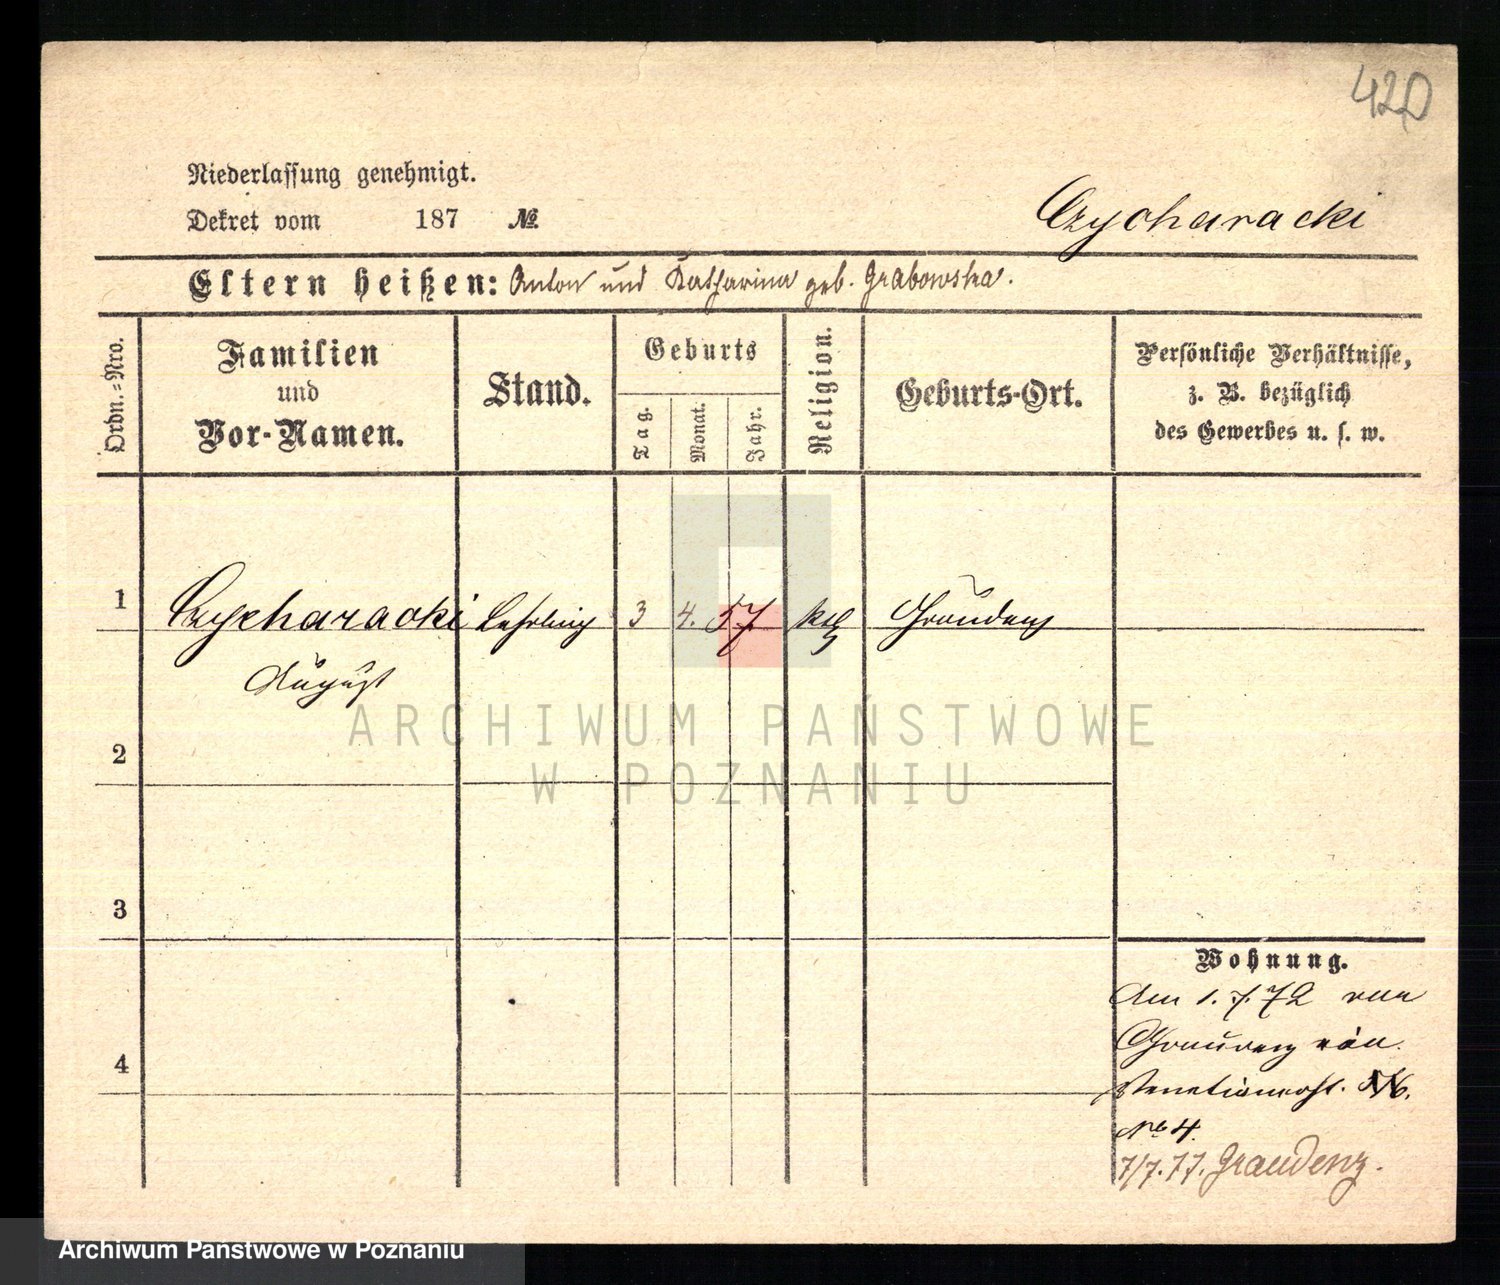 420
Niederlassung genehmigt.
Dekret vom 187 №
Czycharacki
Eltern heißen: Anton und Katharina geb. Grabowska.
Ordn.=Nro.
Familien
und
Vor-Namen.
Stand.
Geburts
Tag.
Monat.
Jahr.
Religion.
Geburts-Ort.
Persönliche Verhältnisse,
z. B. bezüglich
des Gewerbes u. s. w.
1 Czycharacki Lehrling 3 4. 57 kth Graudenz
August
ARCHIWUM PAŃSTWOWE
W POZNANIU
2
3
4
Wohnung.
Am 1. 7. 72 von
Graudenz
Venetianerst.
No 4.
7/7. 77. Graudenz.
Archiwum Państwowe w Poznaniu